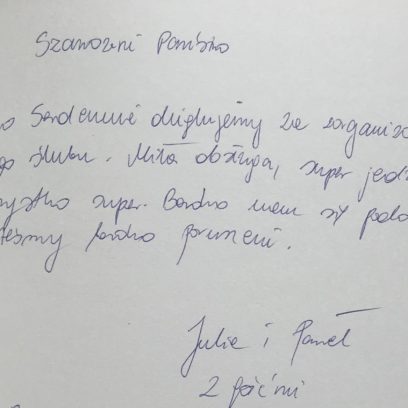 Szanowni Państwo
Serdecznie dziękujemy za zorganizo
go ślubu. Miła obsługa, super jedz
zystko super. Bardzo nam się podo
teśmy bardzo
Julia i Paweł
z gośćmi